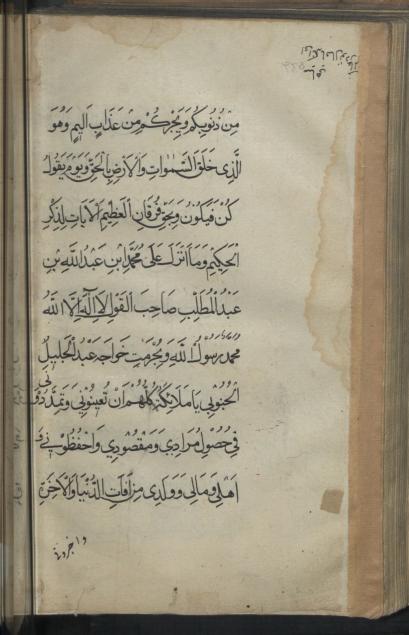 مِنْ ذُنُوبِكُمْ وَيُجِرْكُمْ مِنْ عَذَابٍ اَلِيمٍ وَهُوَ
الَّذِى خَلَقَ السَّمٰوَاتِ وَالْاَرْضَ بِالْحَقِّ وَيَوْمَ يَقُولُ
كُنْ فَيَكُونُ وَبِحَقِّ فُرْقَانِ الْعَظِيمِ الْاٰيَاتِ لِذِكْرِ
الْحَكِيمِ وَمَا اَنْزَلَ عَلٰى مُحَمَّدِ ابْنِ عَبْدِ اللّٰهِ بْنِ
عَبْدِ الْمُطَّلِبِ صَاحِبَ الْقَوْلِ لَا اِلٰهَ اِلَّا اللّٰهُ
محمد رَسُولُ اللّٰهِ وَبِحُرْمَتِ خَوَاجَه عَبْدُ الْجَلِيلُ
يَا مَلَائِكَةُ كُلُّهُمْ اَنْ تُعِينُونِى
فِى حُصُولِ مُرَادِى وَمَقْصُودِى وَاحْفَظُونِى
اَهْلِى وَمَالِى وَوَلَدِى مِنْ اٰفَاتِ الدُّنْيَا وَالْاٰخِرَةِ